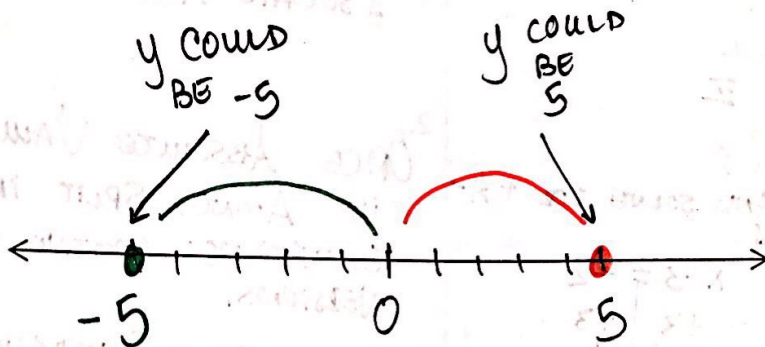 y COULD
BE -5
y COULD
BE
5
-5
0
5